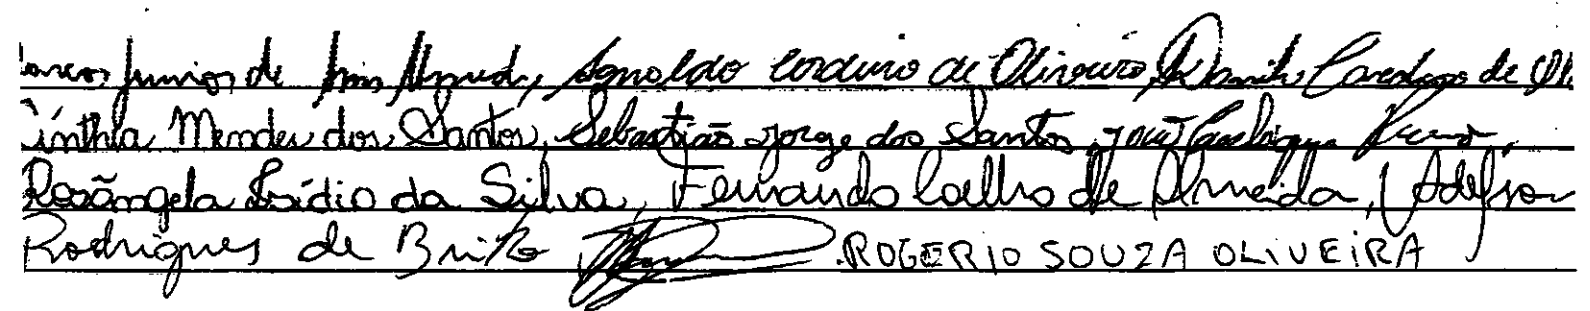 Junior de Agnaldo Cordeiro de Oliveira, Danilo Cardoso de
Cinthia Mendes dos Santos, Sebastião Jorge dos Santos, José
Rosângela Isídio da Silva, Fernando Coelho de Almeida, Adelson
Rodrigues de Brito ROGERIO SOUZA OLIVEIRA